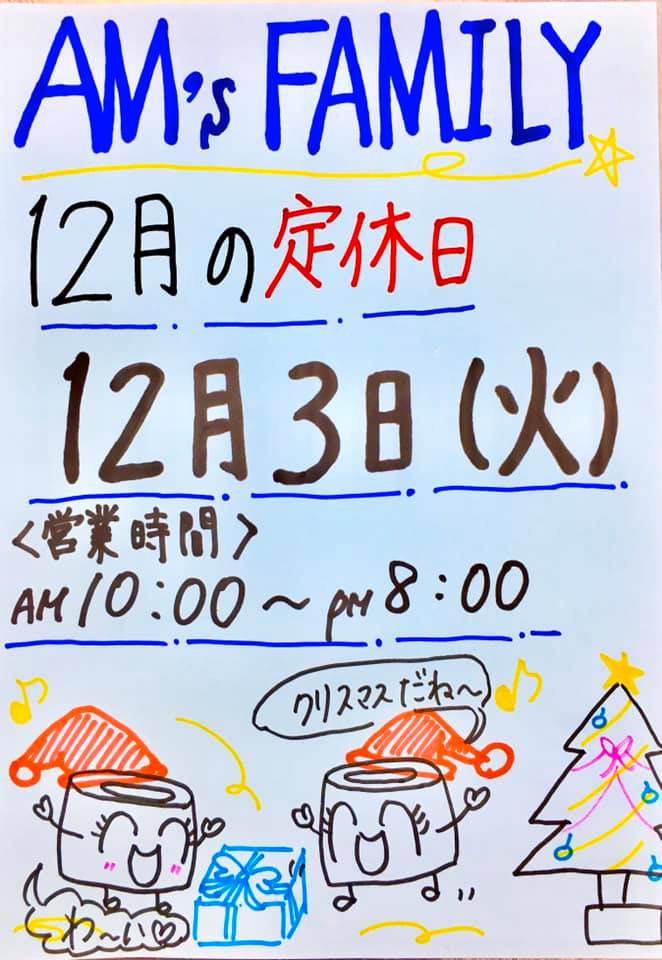 AM's FAMILY
12月の定休日
12月3日(火)
<営業時間>
AM10:00〜PM8:00
クリスマスだね〜
わ〜い♡